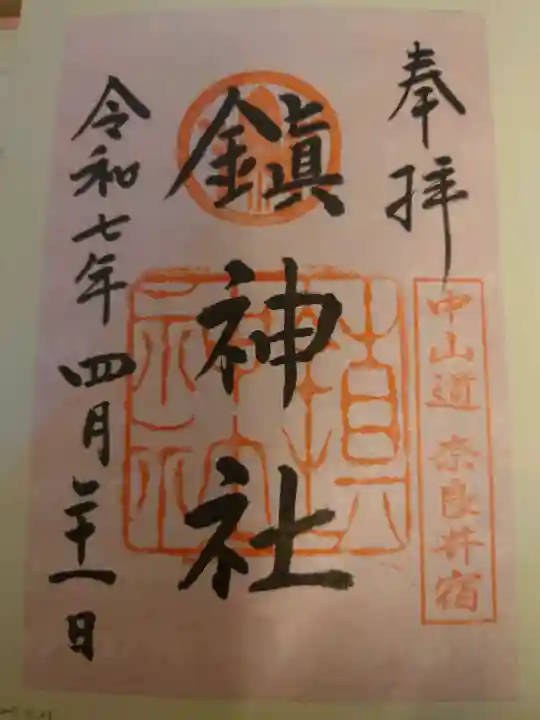 奉拝
中山道 奈良井宿
鎮神社
令和七年四月二十一日